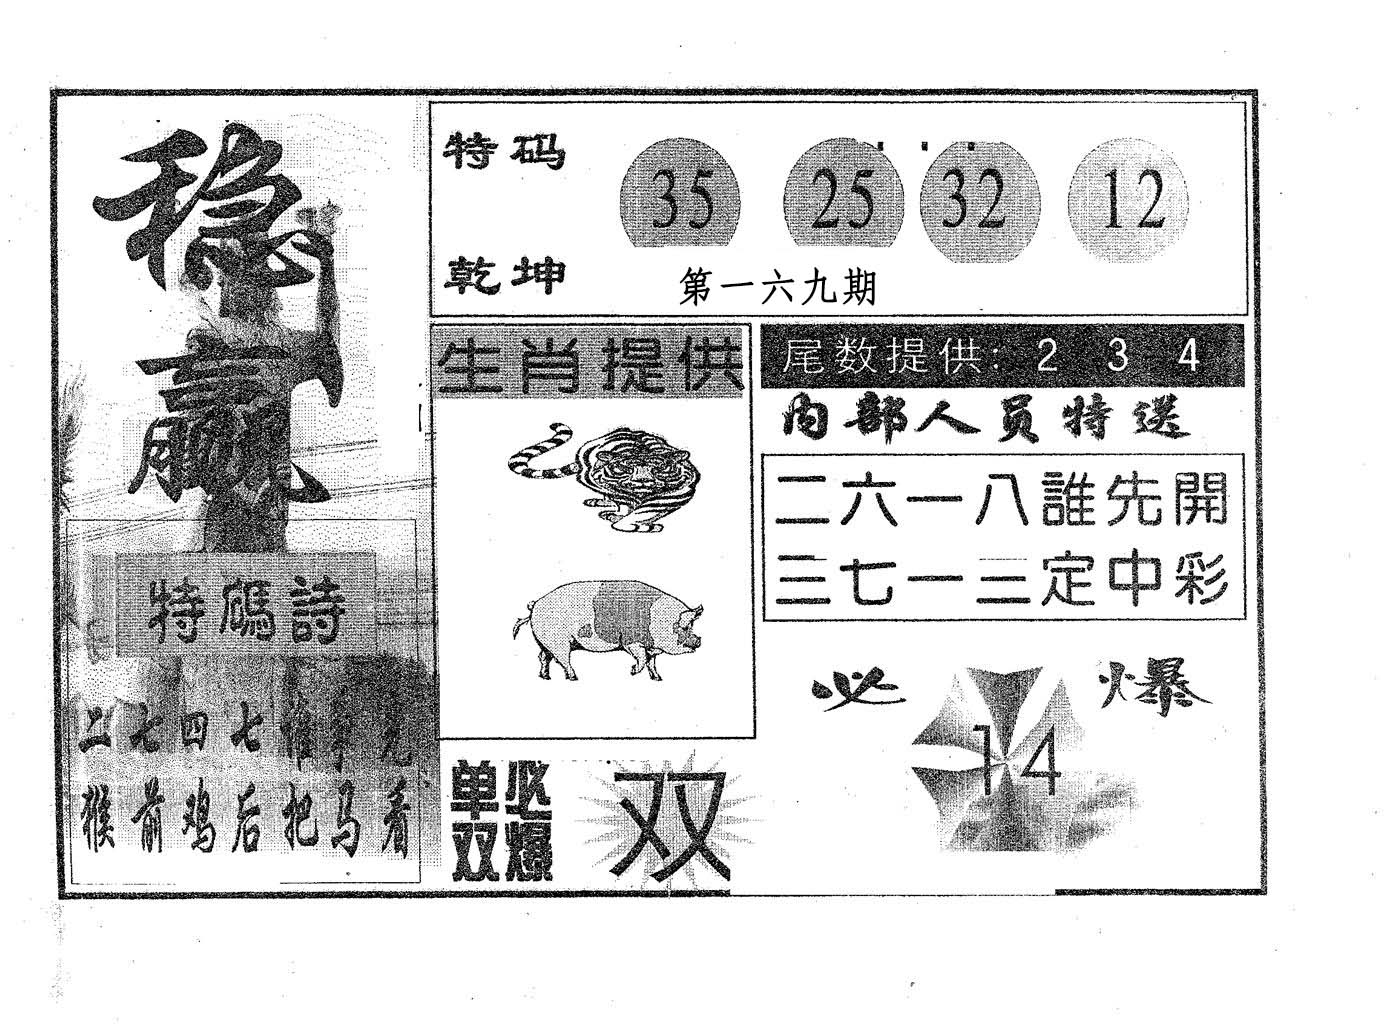 稳
赢
特碼詩
二七四七谁争先
猴前鸡后把马看
特码
乾坤
35 25 32 12
第一六九期
生肖提供
单双必爆
双
尾数提供: 2 3 4
内部人员特送
二六一八誰先開
三七一三定中彩
必爆
14